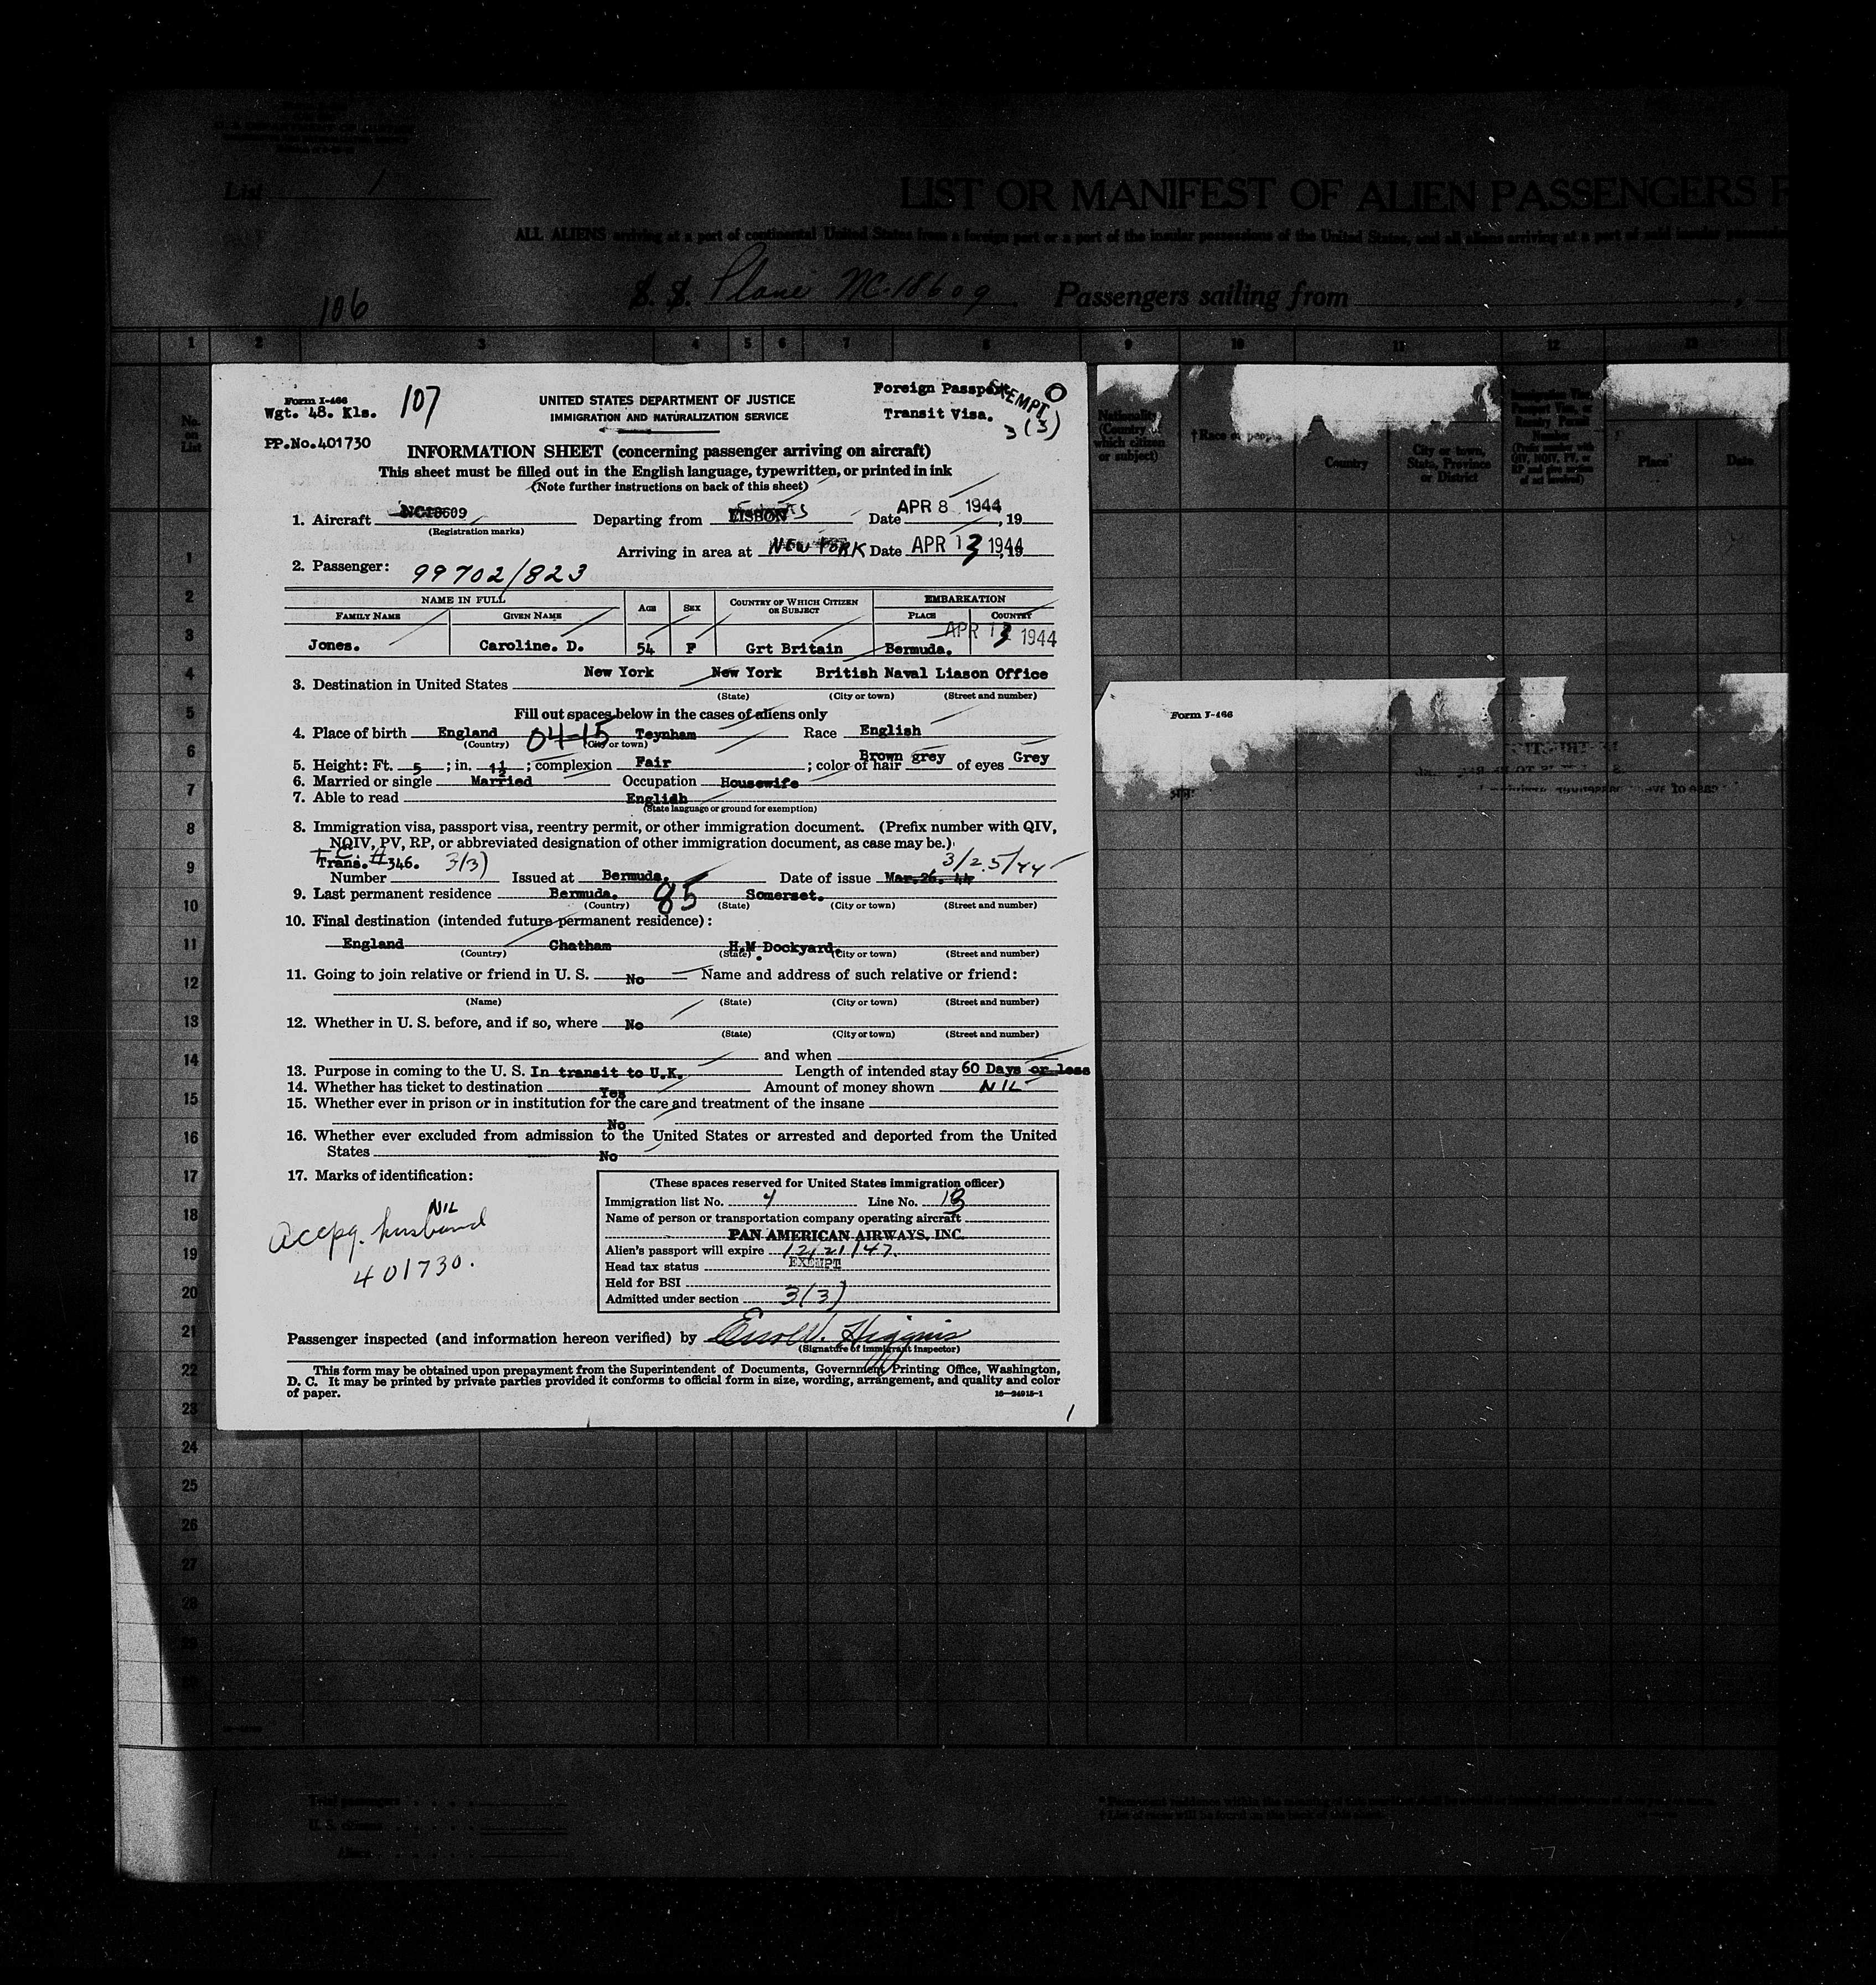 List 1
LIST OR MANIFEST OF ALIEN PASSENGERS
ALL ALIENS arriving at a port of continental United States from a foreign port or a port of the insular possessions of the United States, and all aliens arriving at a port of said insular
S. S. Plane NC-18609 Passengers sailing from
106
1 2 3 4 5 6 7 8 9 10 11 12 13
Form I-466
Wgt. 48. Kls.
107
PP.No.401730
UNITED STATES DEPARTMENT OF JUSTICE
IMMIGRATION AND NATURALIZATION SERVICE
Foreign Passport
EXEMPT
Transit Visa.
3(3)
INFORMATION SHEET (concerning passenger arriving on aircraft)
This sheet must be filled out in the English language, typewritten, or printed in ink
(Note further instructions on back of this sheet)
1. Aircraft NC18609 Departing from LISBON Date APR 8 1944, 19
(Registration marks)
Arriving in area at NEW YORK Date APR 13 1944, 19
2. Passenger: 99702/823
NAME IN FULL AGE SEX COUNTRY OF WHICH CITIZEN OR SUBJECT EMBARKATION
FAMILY NAME GIVEN NAME PLACE COUNTRY
APR 13 1944
Jones. Caroline. D. 54 F Grt Britain Bermuda.
New York New York British Naval Liason Office
3. Destination in United States
(State) (City or town) (Street and number)
Fill out spaces below in the cases of aliens only
4. Place of birth England 04-15 Teynham Race English
(Country) (City or town)
5. Height: Ft. 5; in. 1½; complexion Fair; color of hair Brown grey of eyes Grey
6. Married or single Married Occupation Housewife
7. Able to read English
(State language or ground for exemption)
8. Immigration visa, passport visa, reentry permit, or other immigration document. (Prefix number with QIV,
NQIV, PV, RP, or abbreviated designation of other immigration document, as case may be.)
Trans. #346. 3(3) 3/25/44
Number Issued at Bermuda. Date of issue Mar. 26. 44
9. Last permanent residence Bermuda. 85 Somerset.
(Country) (State) (City or town) (Street and number)
10. Final destination (intended future permanent residence):
England Chatham H.M Dockyard.
(Country) (State) (City or town) (Street and number)
11. Going to join relative or friend in U. S. No Name and address of such relative or friend:
(Name) (State) (City or town) (Street and number)
12. Whether in U. S. before, and if so, where No
(State) (City or town) (Street and number)
and when
13. Purpose in coming to the U. S. In transit to U.K. Length of intended stay 60 Days or less
14. Whether has ticket to destination Yes Amount of money shown NIL
15. Whether ever in prison or in institution for the care and treatment of the insane
No
16. Whether ever excluded from admission to the United States or arrested and deported from the United
States No
17. Marks of identification:
NIL
Accpg. husband
401730.
(These spaces reserved for United States immigration officer)
Immigration list No. 4 Line No. 13
Name of person or transportation company operating aircraft
PAN AMERICAN AIRWAYS, INC.
Alien's passport will expire 12/21/47.
Head tax status EXEMPT
Held for BSI
Admitted under section 3(3)
Passenger inspected (and information hereon verified) by Errol W. Higgins
(Signature of immigrant inspector)
This form may be obtained upon prepayment from the Superintendent of Documents, Government Printing Office, Washington,
D. C. It may be printed by private parties provided it conforms to official form in size, wording, arrangement, and quality and color
of paper.
16—24915-1
1
No. on List
1
2
3
4
5
6
7
8
9
10
11
12
13
14
15
16
17
18
19
20
21
22
23
24
25
26
27
28
29
Nationality (Country of which citizen or subject)
†Race or people
Country
City or town, State, Province or District
Place
Date
Form I-466
Total passengers
U. S. citizens
Aliens